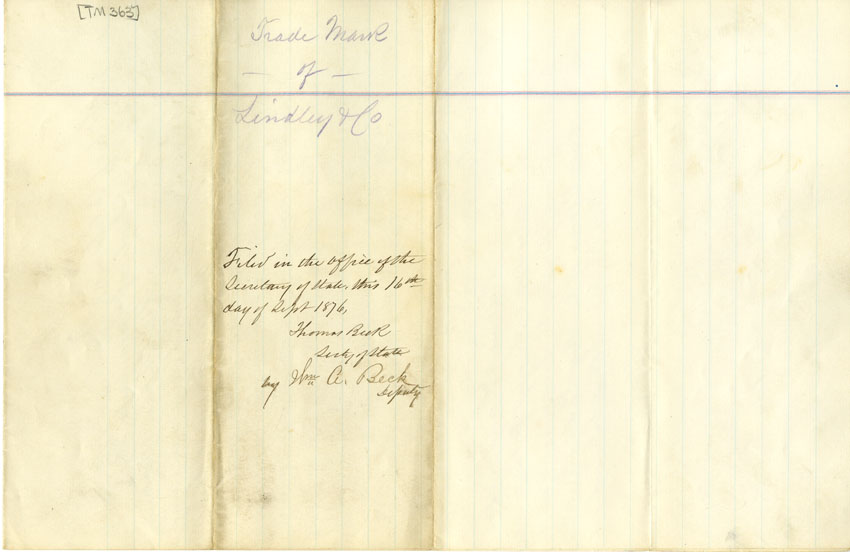 [TM 363]
Trade Mark
— of —
Lindley & Co
Filed in the office of the
Secretary of State, this 16th
day of Sept 1876,
Thomas Beck
Secty of State
by Wm A. Beck
Deputy